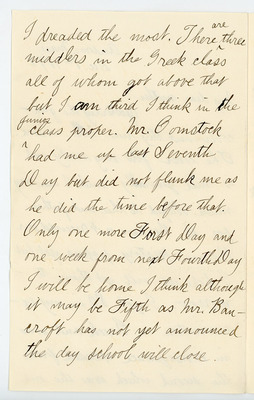 I dreaded the most. There are three
middlers in the Greek class
all of whom got above that
but I am third I think in the
junior class proper. Mr. Comstock
had me up last Seventh
Day but did not flunk me as
he did the time before that.
Only one more First Day and
one week from next Fourth Day
I will be home I think although
it may be Fifth as Mr. Ban-
croft has not yet announced
the day school will close.